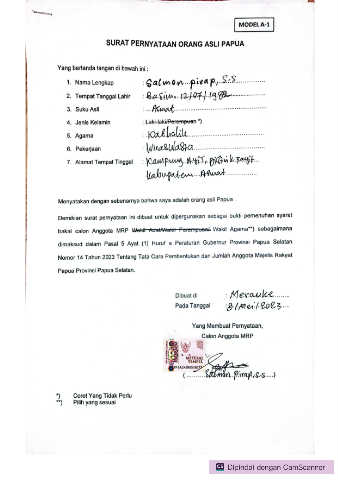 MODEL A-1
SURAT PERNYATAAN ORANG ASLI PAPUA
Yang bertanda tangan di bawah ini :
1. Nama Lengkap : Salmon pirap, S.S
2. Tempat Tanggal Lahir : Basim, 12/07/1982
3. Suku Asli : Asmat
4. Jenis Kelamin : Laki-laki/Perempuan *)
5. Agama : Katholik
6. Pekerjaan : Wiraswasta
7. Alamat Tempat Tinggal : Kampung
Kabupaten Asmat
Menyatakan dengan sebenarnya bahwa saya adalah orang asli Papua.
Demikian surat pernyataan ini dibuat untuk dipergunakan sebagai bukti pemenuhan syarat
bakal calon Anggota MRP Wakil Adat/Wakil Perempuan/ Wakil Agama**) sebagaimana
dimaksud dalam Pasal 5 Ayat (1) Huruf a Peraturan Gubernur Provinsi Papua Selatan
Nomor 14 Tahun 2023 Tentang Tata Cara Pembentukan dan Jumlah Anggota Majelis Rakyat
Papua Provinsi Papua Selatan.
Dibuat di : Merauke
Pada Tanggal : 8/Mei/2023
Yang Membuat Pernyataan,
Calon Anggota MRP
METERAI
TEMPEL
(Salmon Pirap, S.S)
*) Coret Yang Tidak Perlu
**) Pilih yang sesuai
CS Dipindai dengan CamScanner